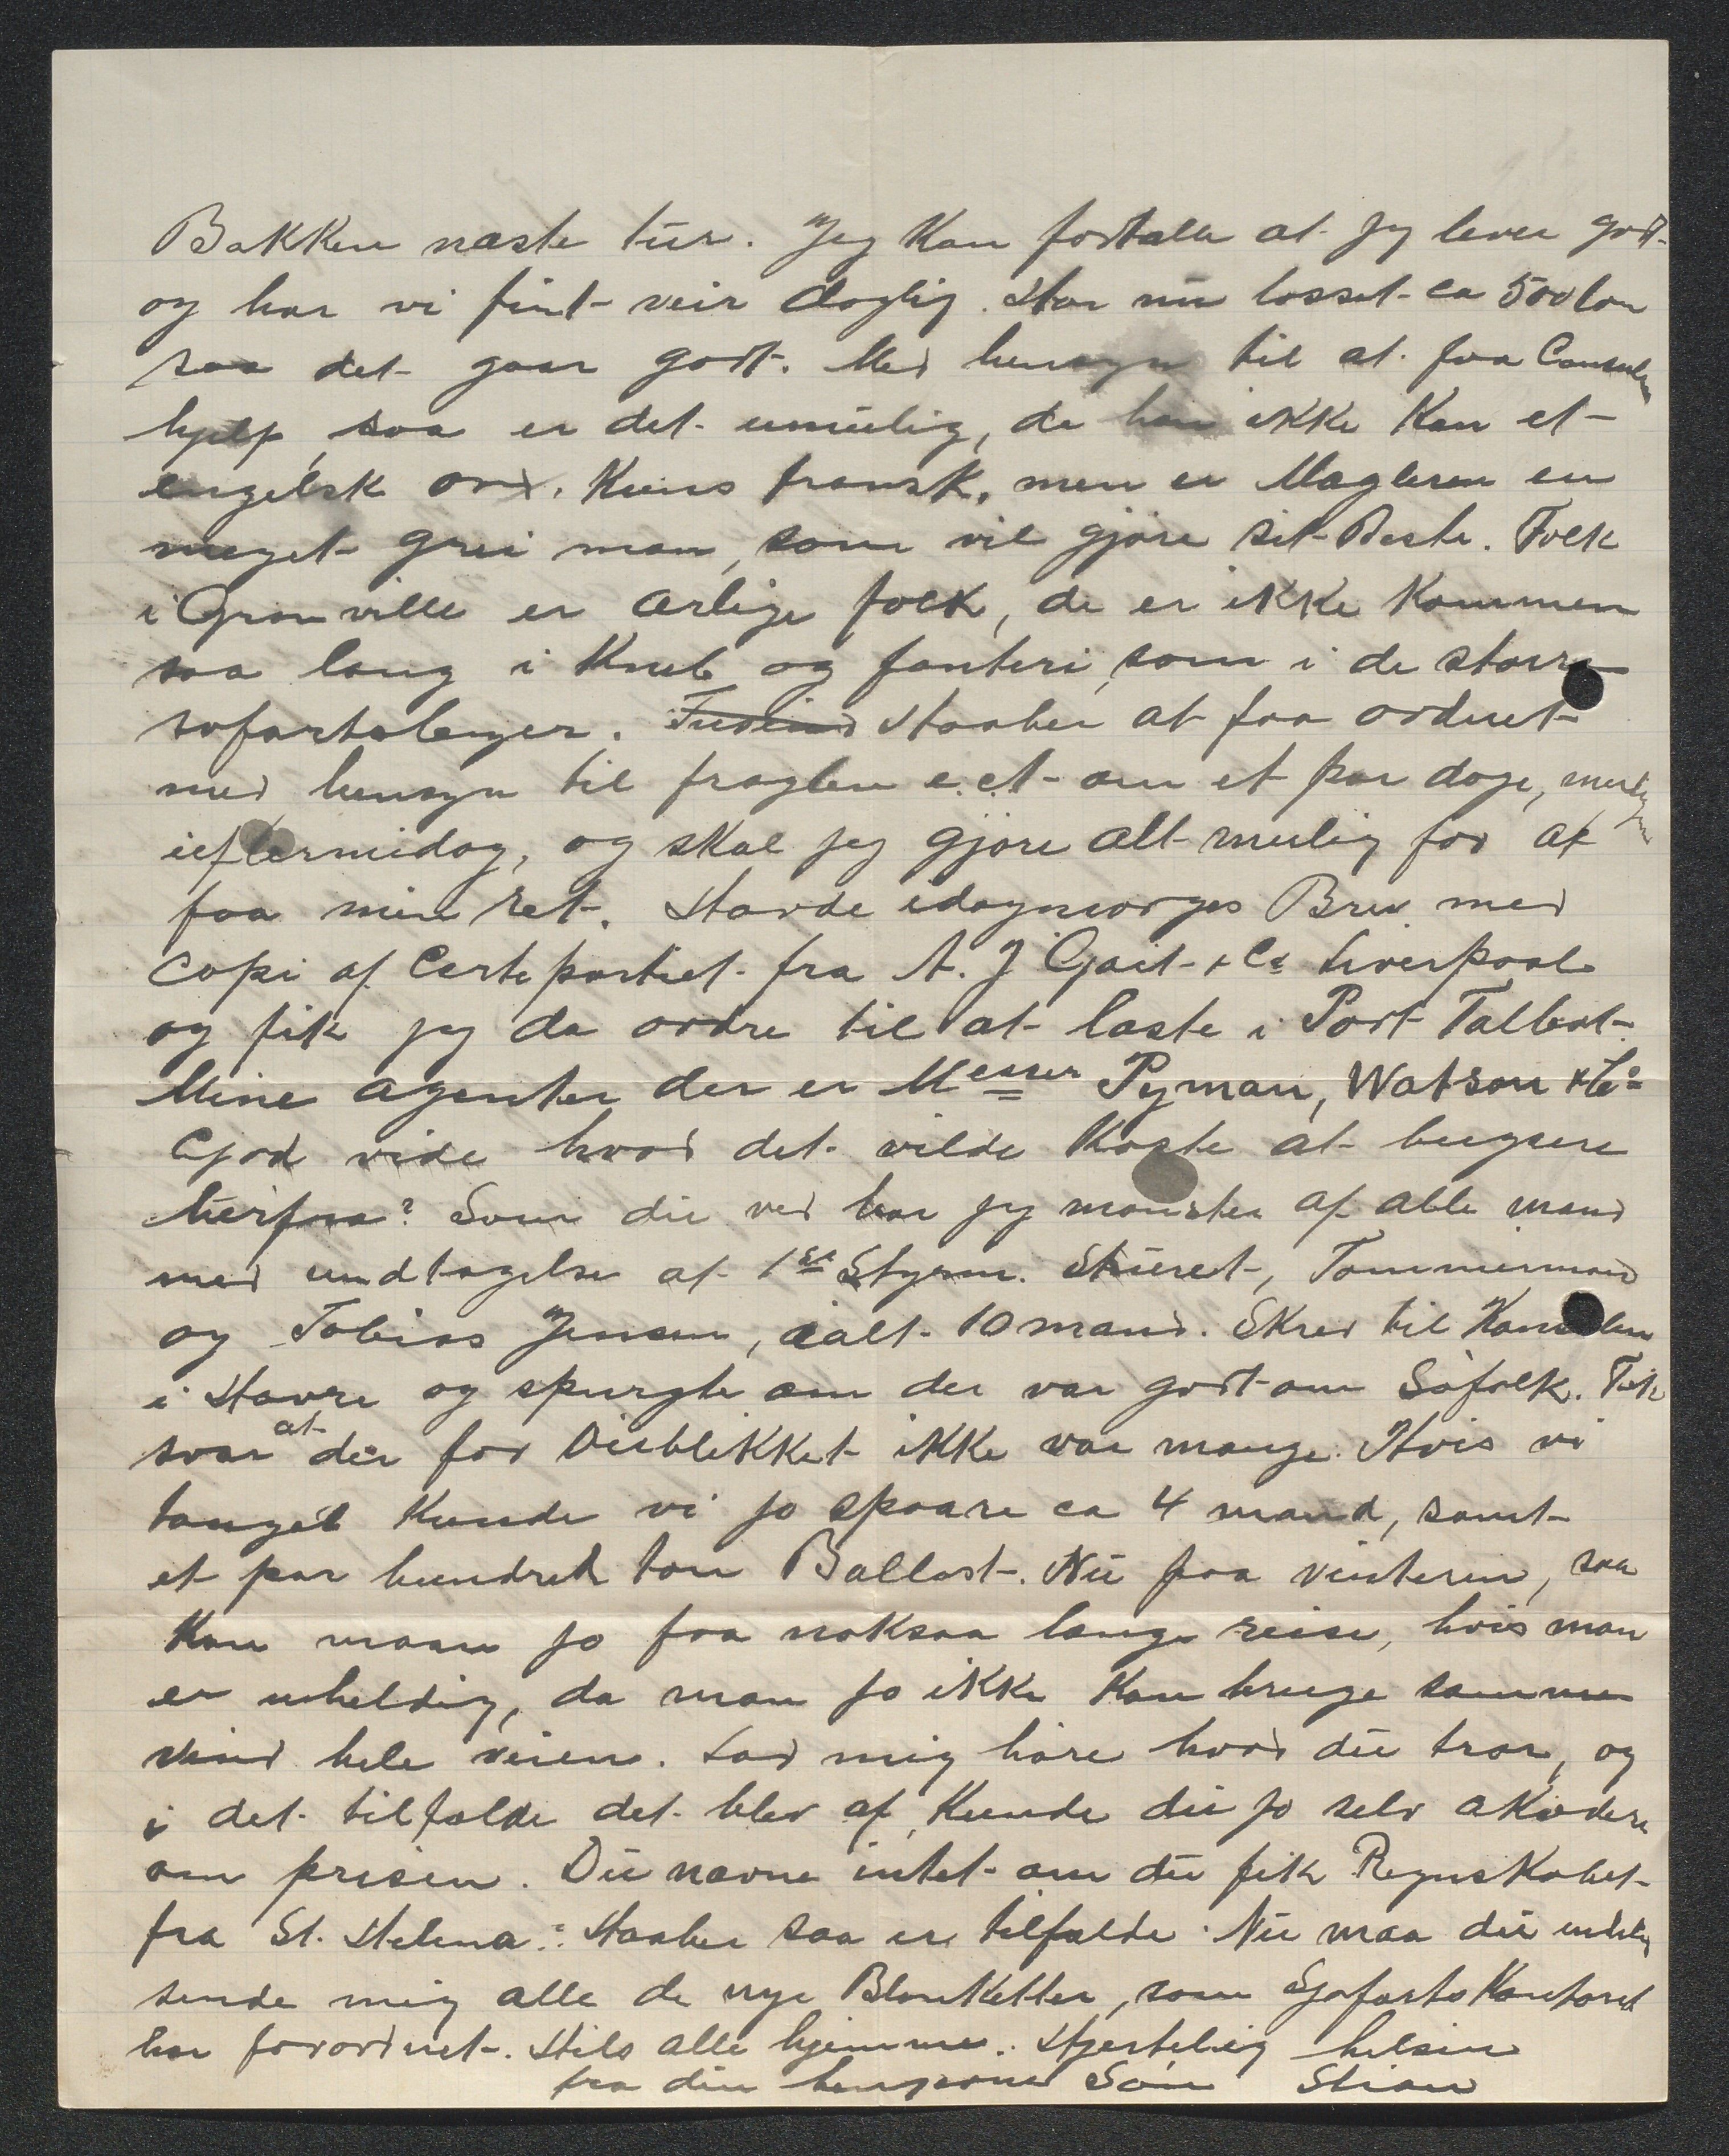 Bakken næste tür. Jeg Kan fortælle at jeg lever godt
og har vi fint veir daglig. Har nü losset ca 500 ton
saa det gaar godt. Med hensyn til at faa Consulens
hjelp, saa er det umülig, da han ikke Kan et
engelsk ord. Küns fransk, men er Mægleren en
meget grei man, som vil gjøre sit Beste. Folk
i Granville er ærlige folk, de er ikke Kommen
saa lang i Kneb og fanteri, som i de større
søfartsbeyer. Haaber at faa ordnet
med hensyn til fragten e.c.t om et par dage, muligens
ieftermidag, og skal jeg gjøre alt mulig for at
faa min ret. Havde idagmorges Brev med
Copi af Certepartiet fra A. J Gait & Co Liverpool
og fik jeg da ordre til at laste i Port Talbot.
Mine agenter der er Messrs Pyman, Watson & Co
Gad vide hvad det vilde Koste at bugsere
herfra? Som dü ved har jeg mønster af alle mand
med undtagelse af 1ste Styrm. Stüert, Tømmermand
og Tobias Jensen, ialt 10 mand. Skrev til Konsulen
i Havre og spurgte om der var godt om Søfolk. Fik
svar at der for Øieblikket ikke var mange. Hvis vi
tauget Kunde vi jo spaare ca 4 mand, samt
et par hundreds ton Ballast. Nü paa vinteren, saa
Kan maan jo faa noksaa lange reise, hvis man
er uheldig, da man jo ikke Kan bruge samme
vind hele veien. Lad mig høre hvad dü tror, og
i det tilfælde det blev af, Kunde dü jo selv akordere
om prisen. Dü nævne intet om dü fik Regnskabet
fra St. Helena: Haaber saa er tilfælde. Nü maa dü endelig
sende mig alle de nye Blanketter, som Sjøfartskontoret
har forordnet. Hils alle hjemme. Hjertelig hilsen
fra din hengivne Søn Stian